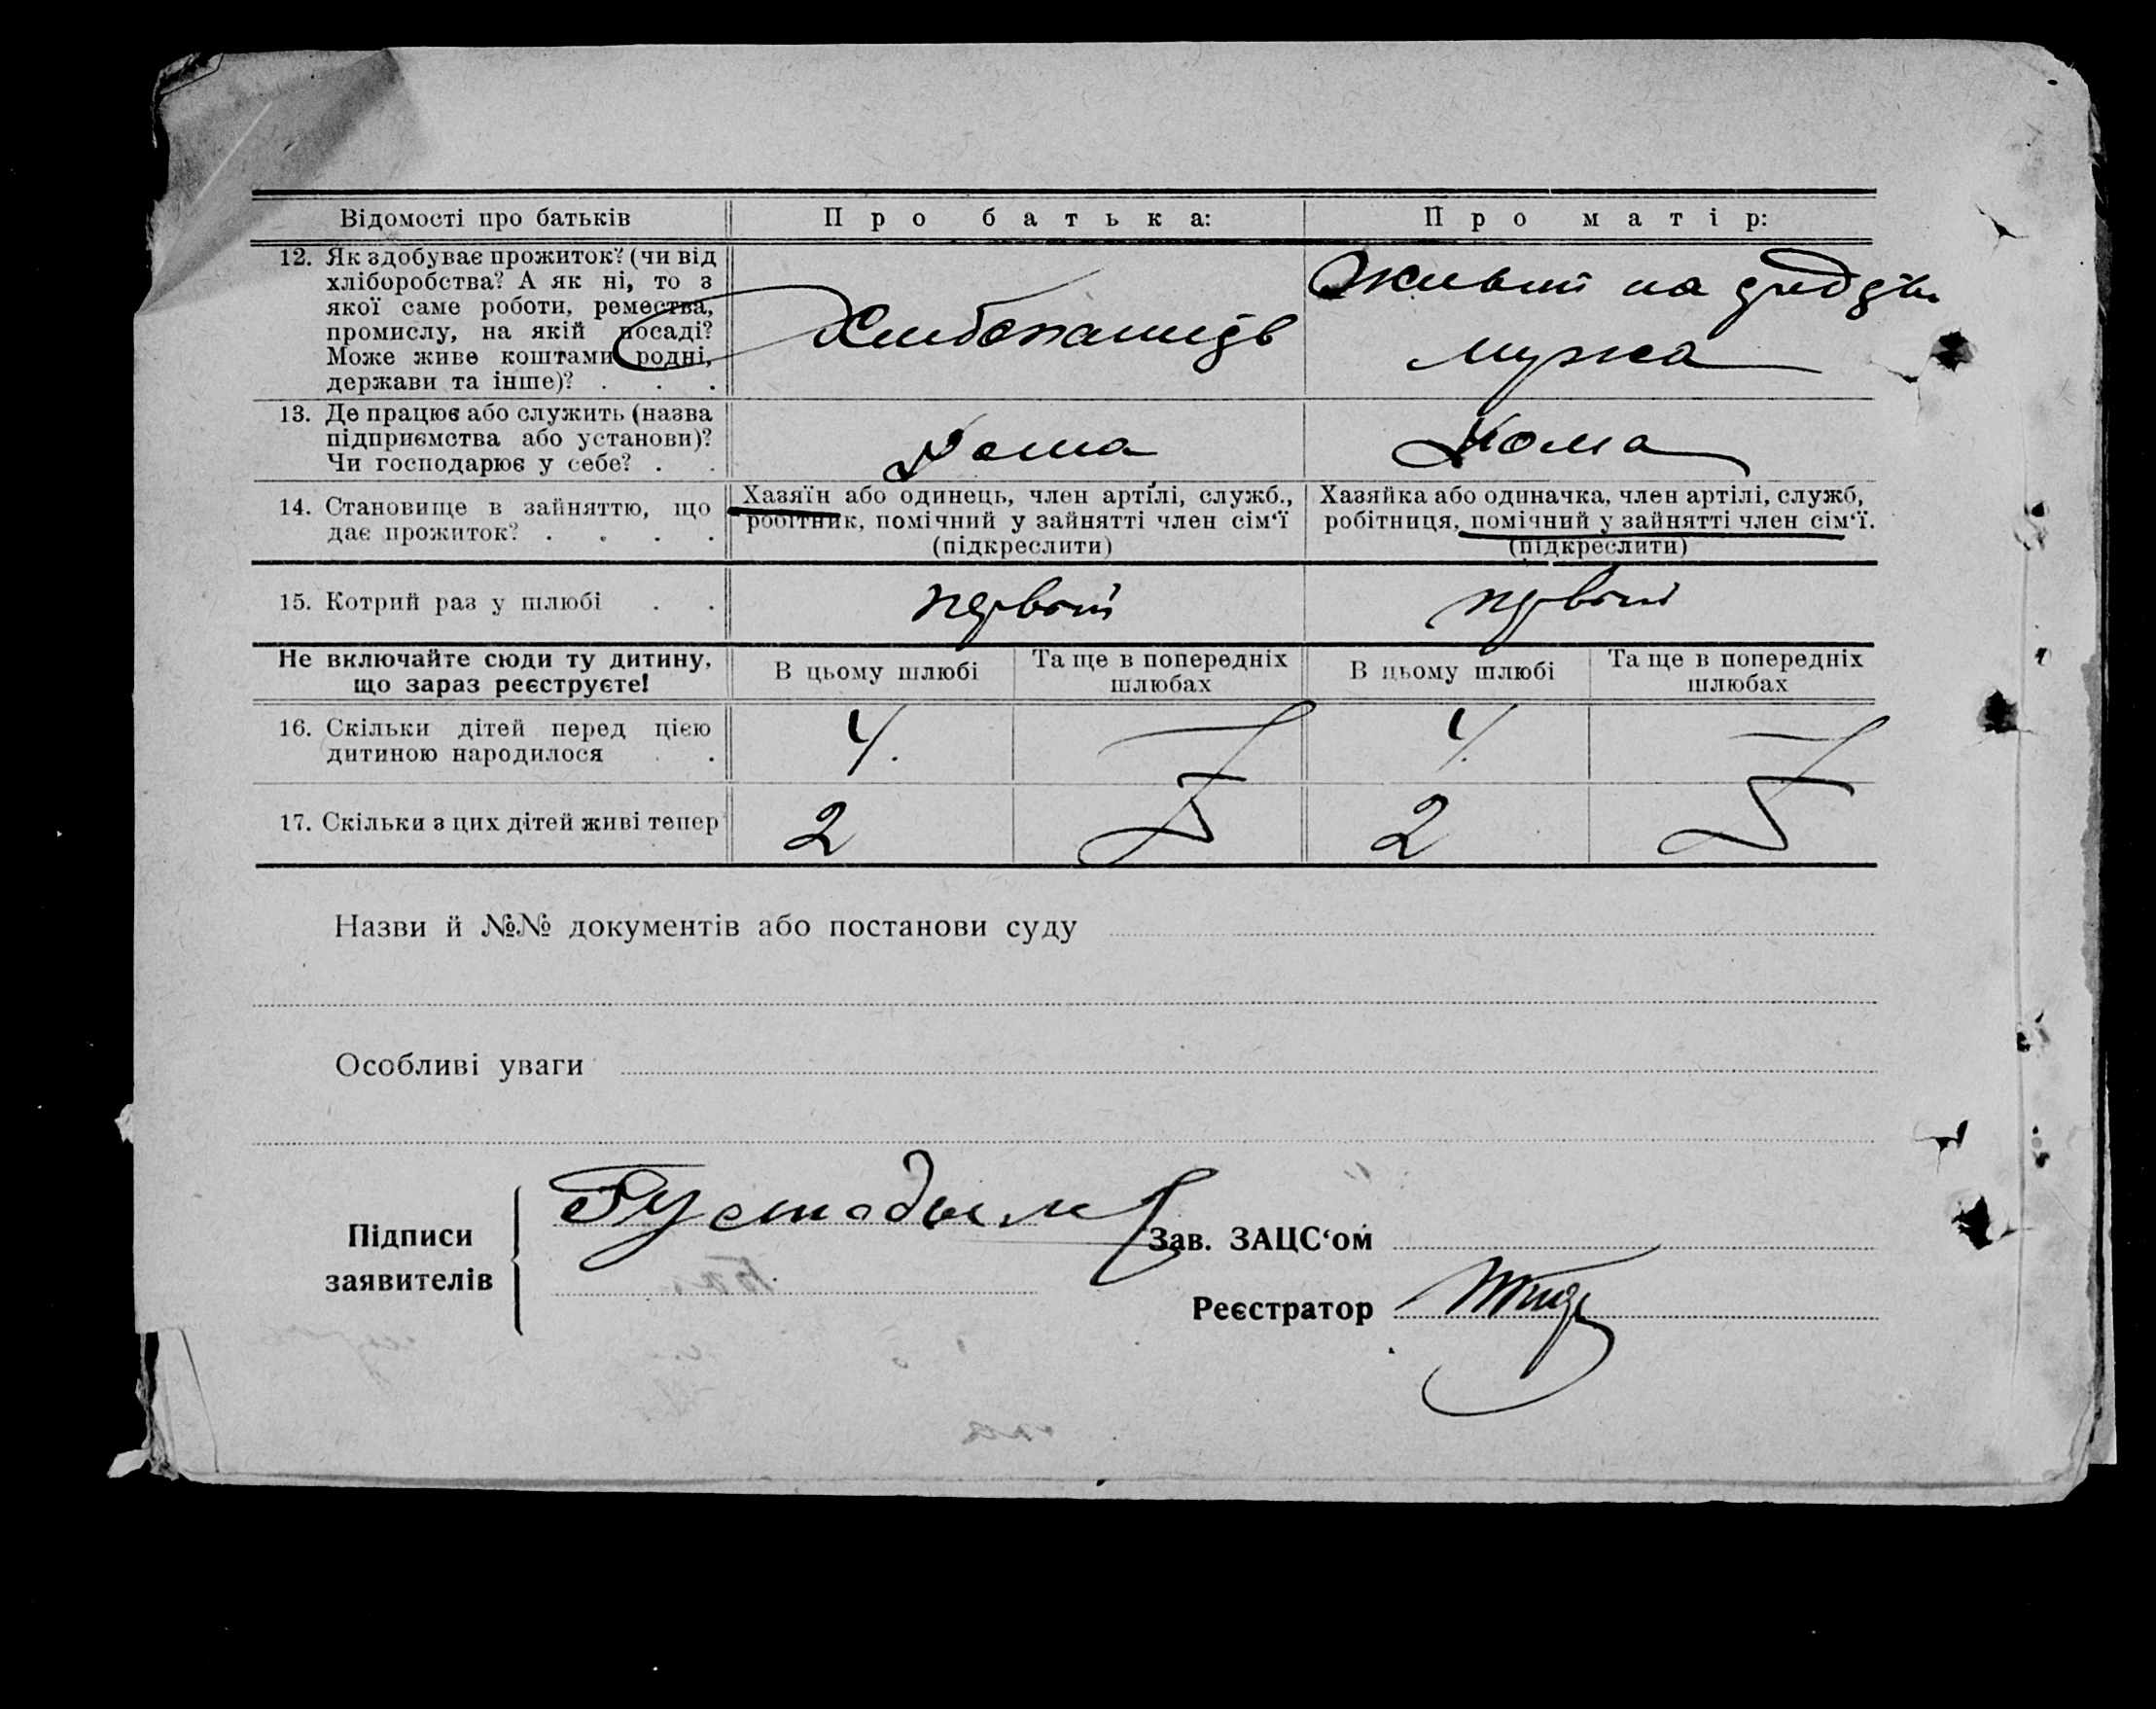 Відомості про батьків
Про батька:
Про матір:
12. Як здобуває прожиток? (чи від
хліборобства? А як ні, то з
якої саме роботи, ремества,
промислу, на якій посаді?
Може живе коштами родні,
держави та інше)? . . .
Хлибопашидв
Живьт на
мужа
13. Де працює або служить (назва
підприємства або установи)?
Чи господарює у себе? . .
Дома
Дома
14. Становище в зайняттю, що
дає прожиток? . . . .
Хазяїн або одинець, член артілі, служб.,
робітник, помічний у зайнятті член сім'ї
(підкреслити)
Хазяйка або одиначка, член артілі, служб,
робітниця, помічний у зайнятті член сім'ї.
(підкреслити)
15. Котрий раз у шлюбі . .
первый
первый
Не включайте сюди ту дитину,
що зараз реєструєте!
В цьому шлюбі
Та ще в попередніх
шлюбах
В цьому шлюбі
Та ще в попередніх
шлюбах
16. Скільки дітей перед цією
дитиною народилося . .
4.
4.
17. Скільки з цих дітей живі тепер
2
2
Назви й №№ документів або постанови суду
Особливі уваги
Підписи
заявителів
Зав. ЗАЦС'ом
Реєстратор